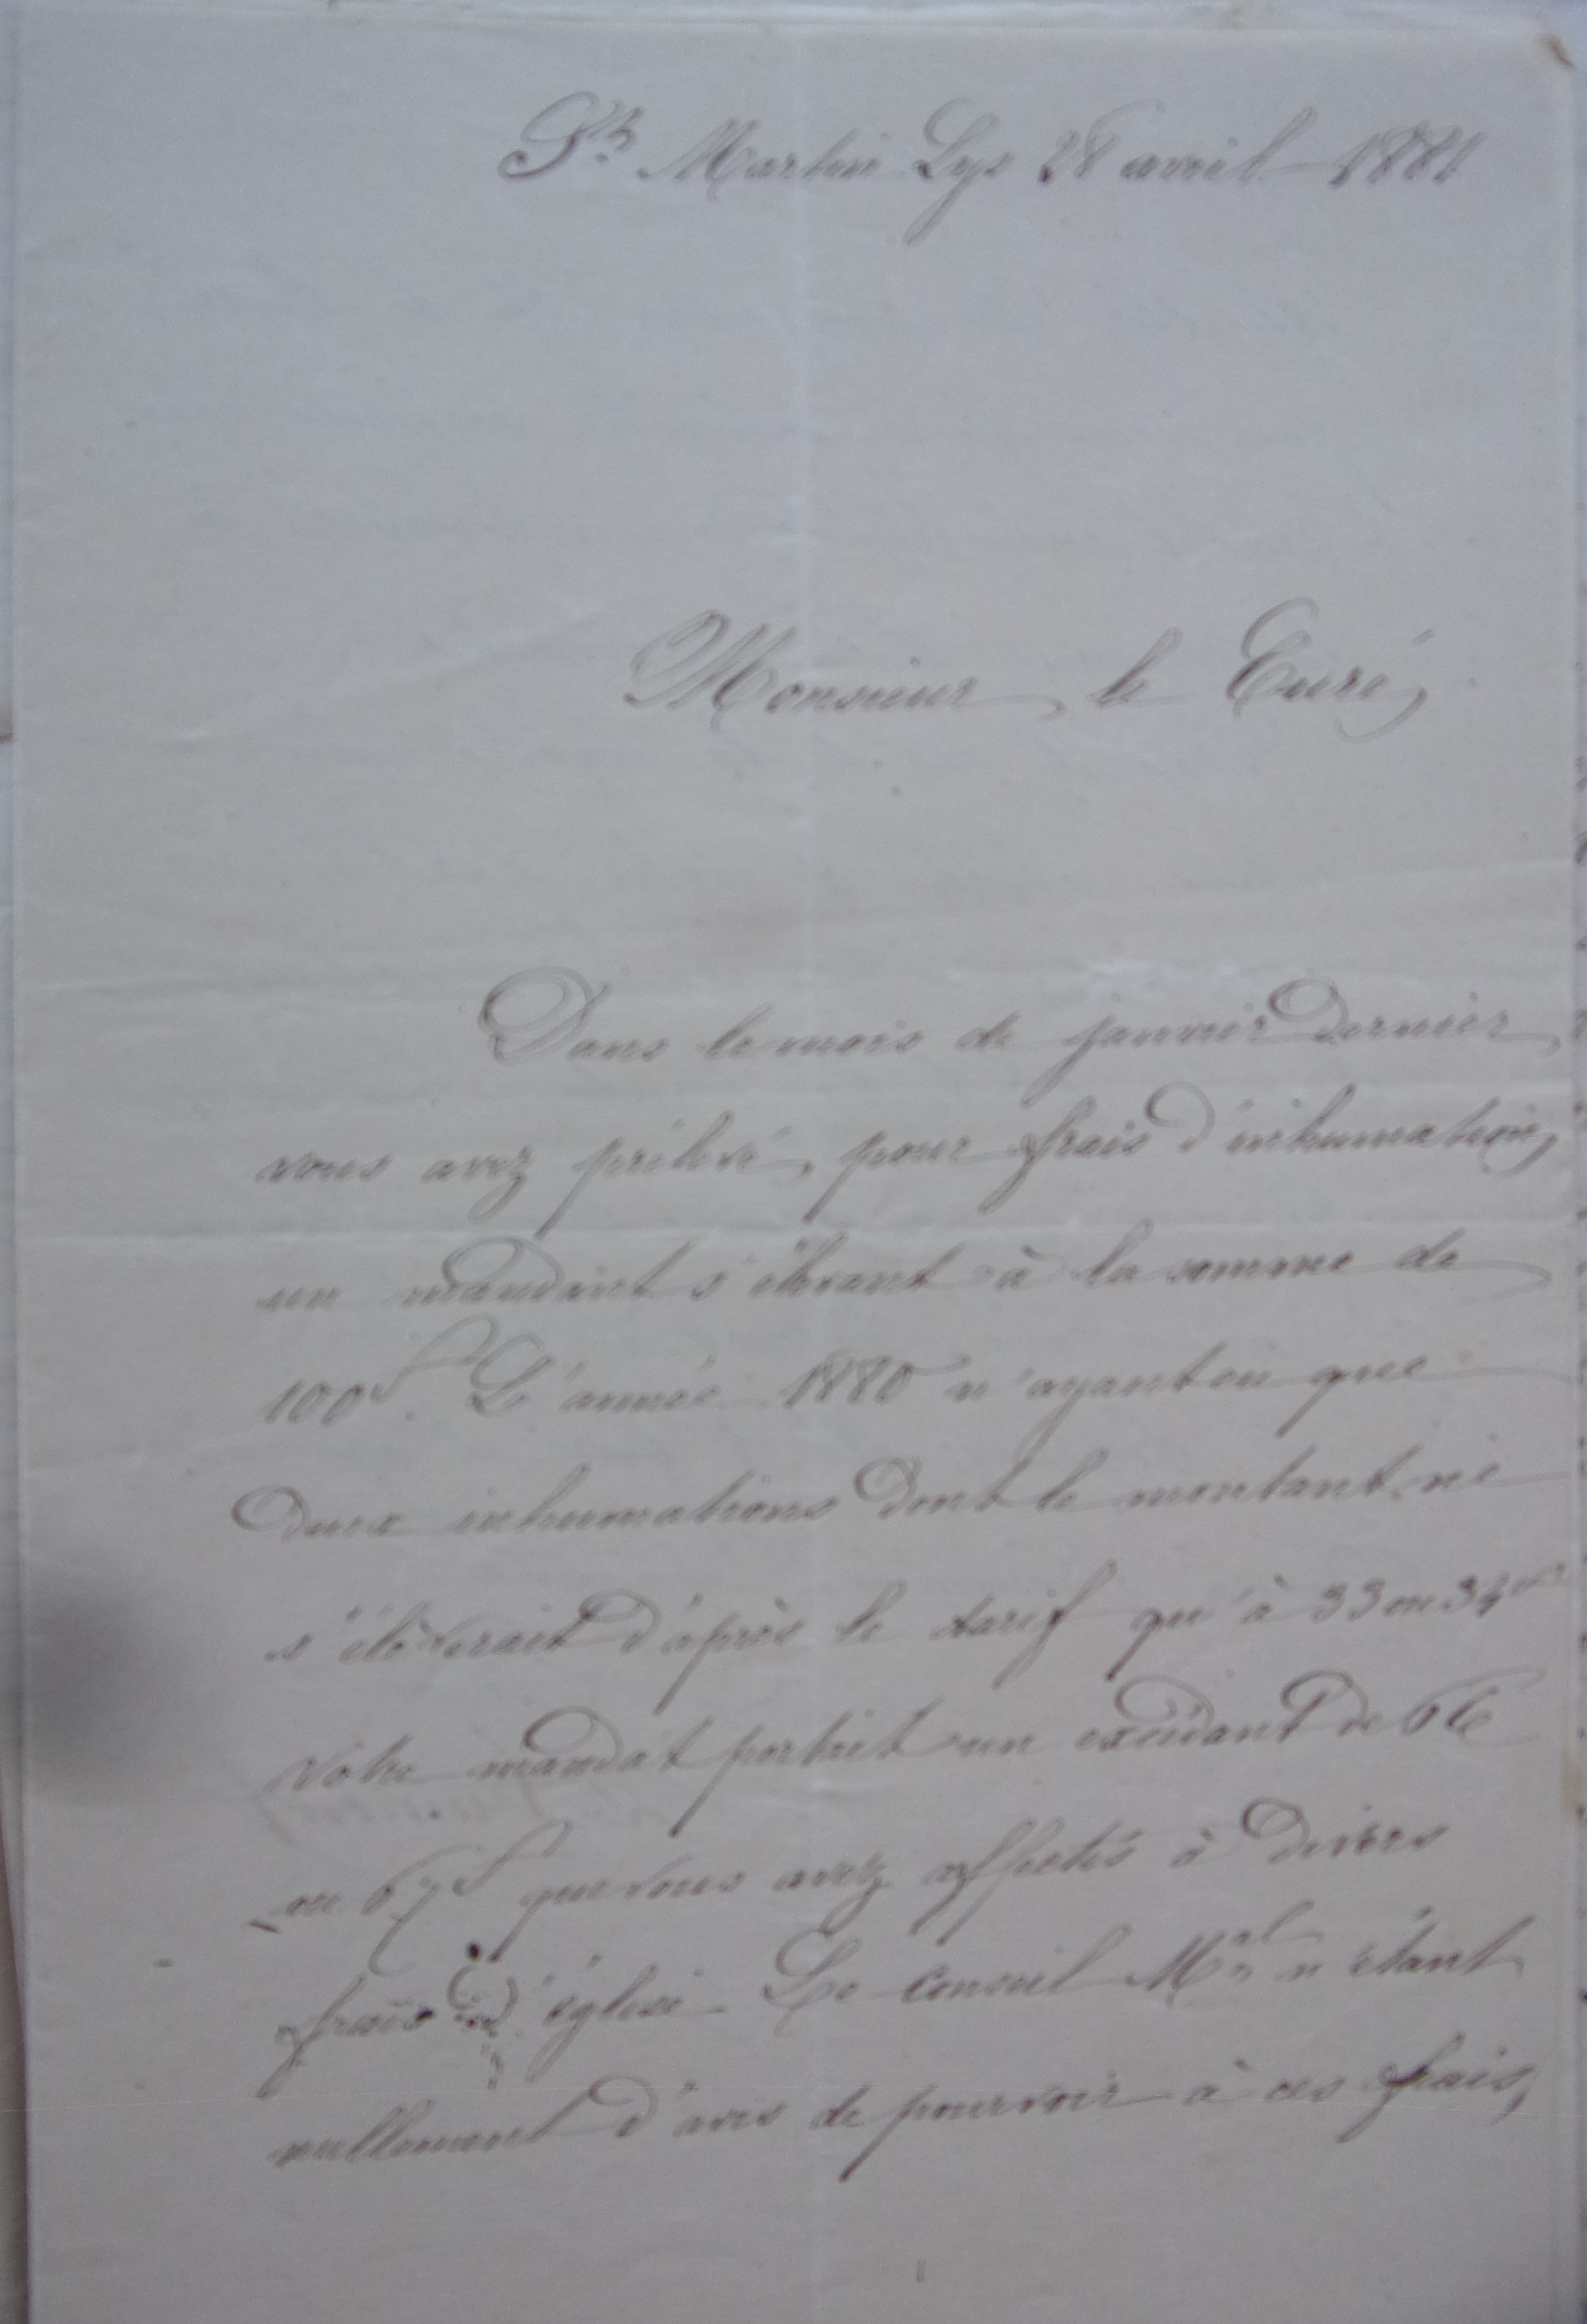 St Martin Lys 28 avril 1881
Monsieur le Curé,
Dans le mois de janvier dernier,
vous avez prélevé, pour frais d'inhumation,
un mandant s'élevant à la somme de
100f. L'année 1880 n'ayant eu que
deux inhumations dont le montant ne
s'élèverait d'après le tarif qu'à 33 ou 34f
votre mandat portait un excédant de 66
ou 67f que vous avez affectés à divers
frais d'église. Le Conseil Mal n'étant
nullement d'avis de pourvoir à ces frais,